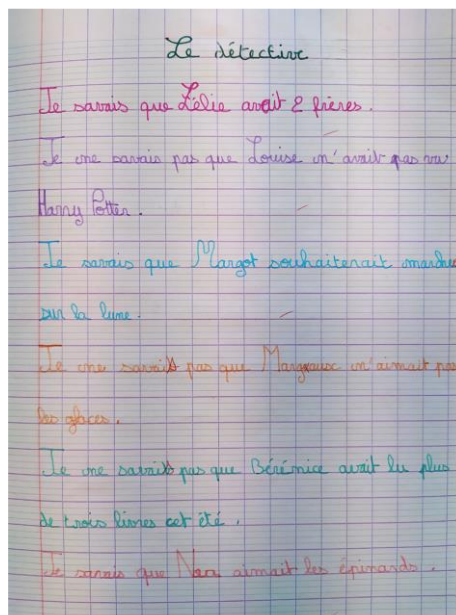 Le détective
Je savais que Zélie avait 2 frères.
Je ne savais pas que Louise n'avait pas vu
Harry Potter.
Je savais que Margot souhaiterait marcher
sur la lune.
Je ne savais pas que Margaux n'aimait pas
les glaces.
Je ne savais pas que Bérénice avait lu plus
de trois livres cet été.
Je savais que Nora aimait les épinards.